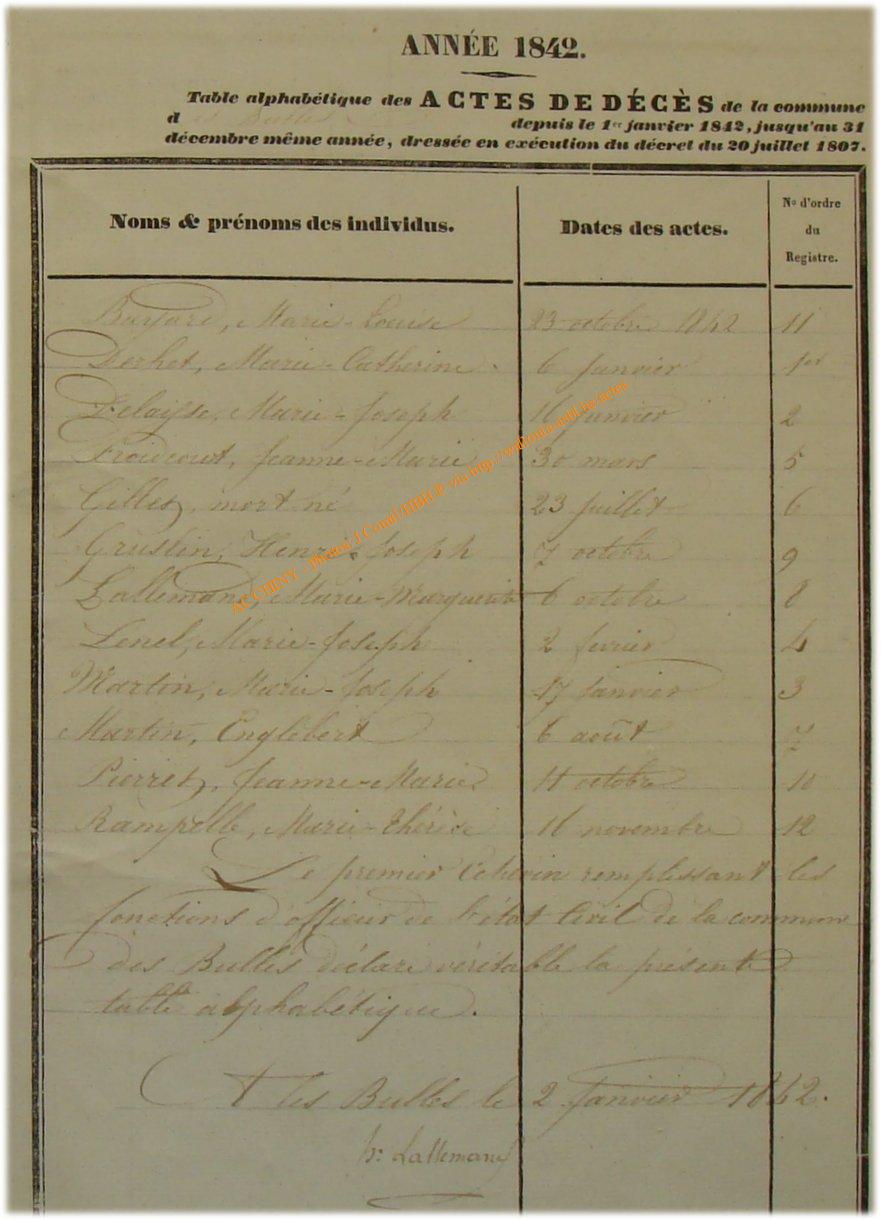 ANNÉE 1842.
Table alphabétique des ACTES DE DÉCÈS de la commune
d es Bulles depuis le 1er janvier 1842, jusqu'au 31
décembre même année, dressée en exécution du décret du 20 juillet 1807.
Noms & prénoms des individus. Dates des actes. No d'ordre du Registre.
Bayard, Marie-Louise 23 octobre 1842 11
Derhet, Marie-Catherine. 6 Janvier 1er
Delaisse, Marie-Joseph 16 Janvier 2
Froidcourt, Jeanne-Marie 30 mars 5
Gillet, mort né 23 juillet 6
Gruslin, Henri-Joseph 7 octobre 9
Lallemand, Marie-Marguerite 6 octobre 8
Lenel, Marie-Joseph 2 fevrier 4
Martin, Marie-Joseph 17 Janvier 3
Martin, Englebert 6 août 7
Pierret, Jeanne-Marie 11 octobre 10
Rampelle, Marie-Thérèse 16 novembre 12
Le premier Echevin remplissant les
fonctions d'officier de l'état Civil de la commune
des Bulles déclare véritable la présente
table alphabétique.
les Bulles le 2 Janvier 1842.
h: Lallemand
AC CHINY - photos J Conil HBH.® via http://wallonia-asbl.be/actes